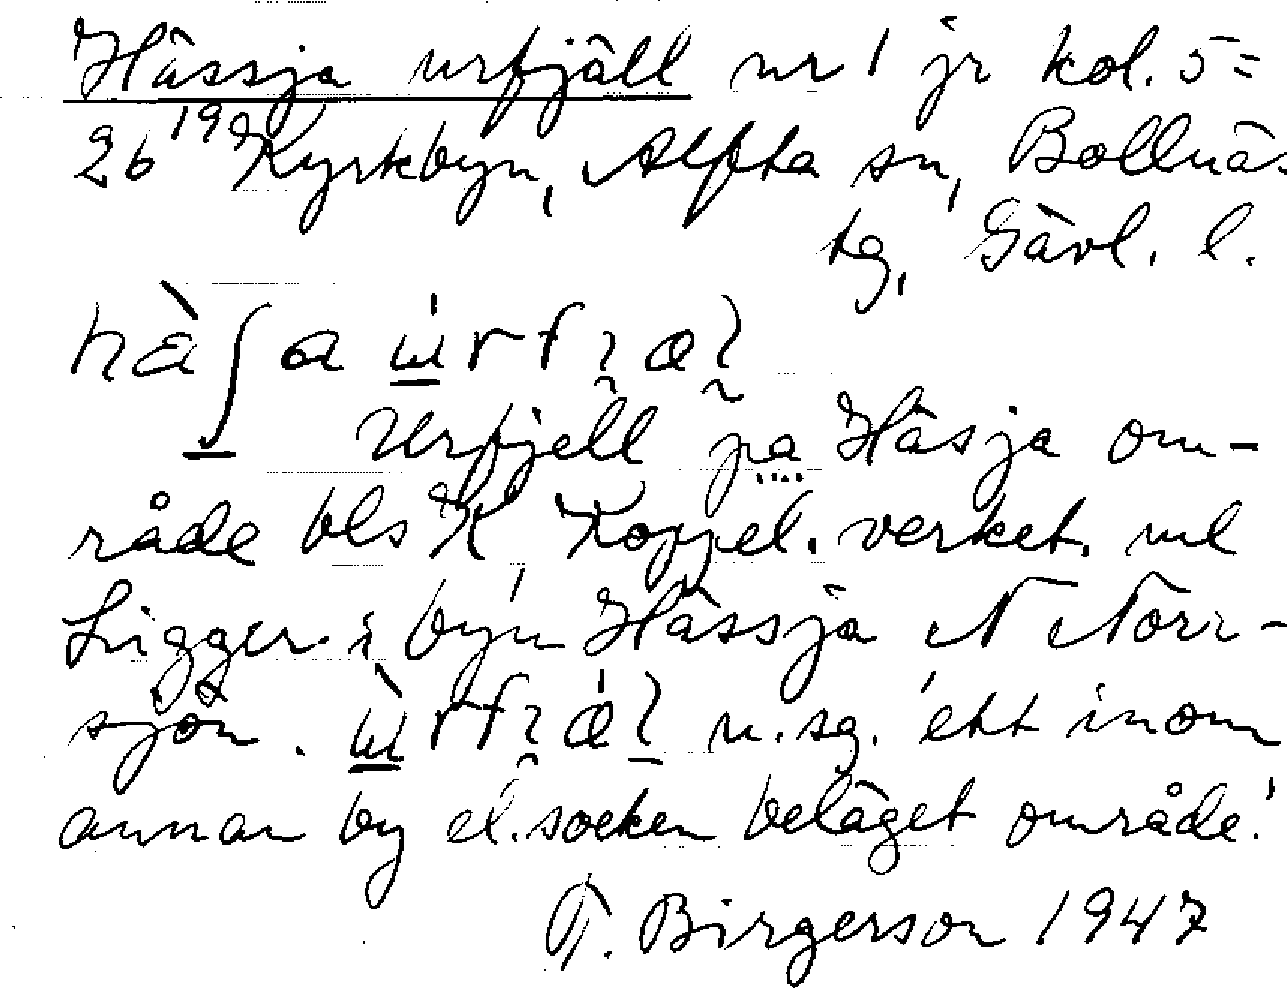 Hässja urfjäll nr 1 jr kol. 5 =
26 199 Kyrkbyn, Alfta sn, Bollnäs
tg, Gävl. l.
hàʃa ẃrfjäl
Urfjell på Häsja om-
råde bls K, Koppel. verket.
Ligger i byn Hässja N Norr-
sjön. ẁrfjäl n. sg. 'ett inom
annan by el. socken beläget område.'
T. Birgerson 1947